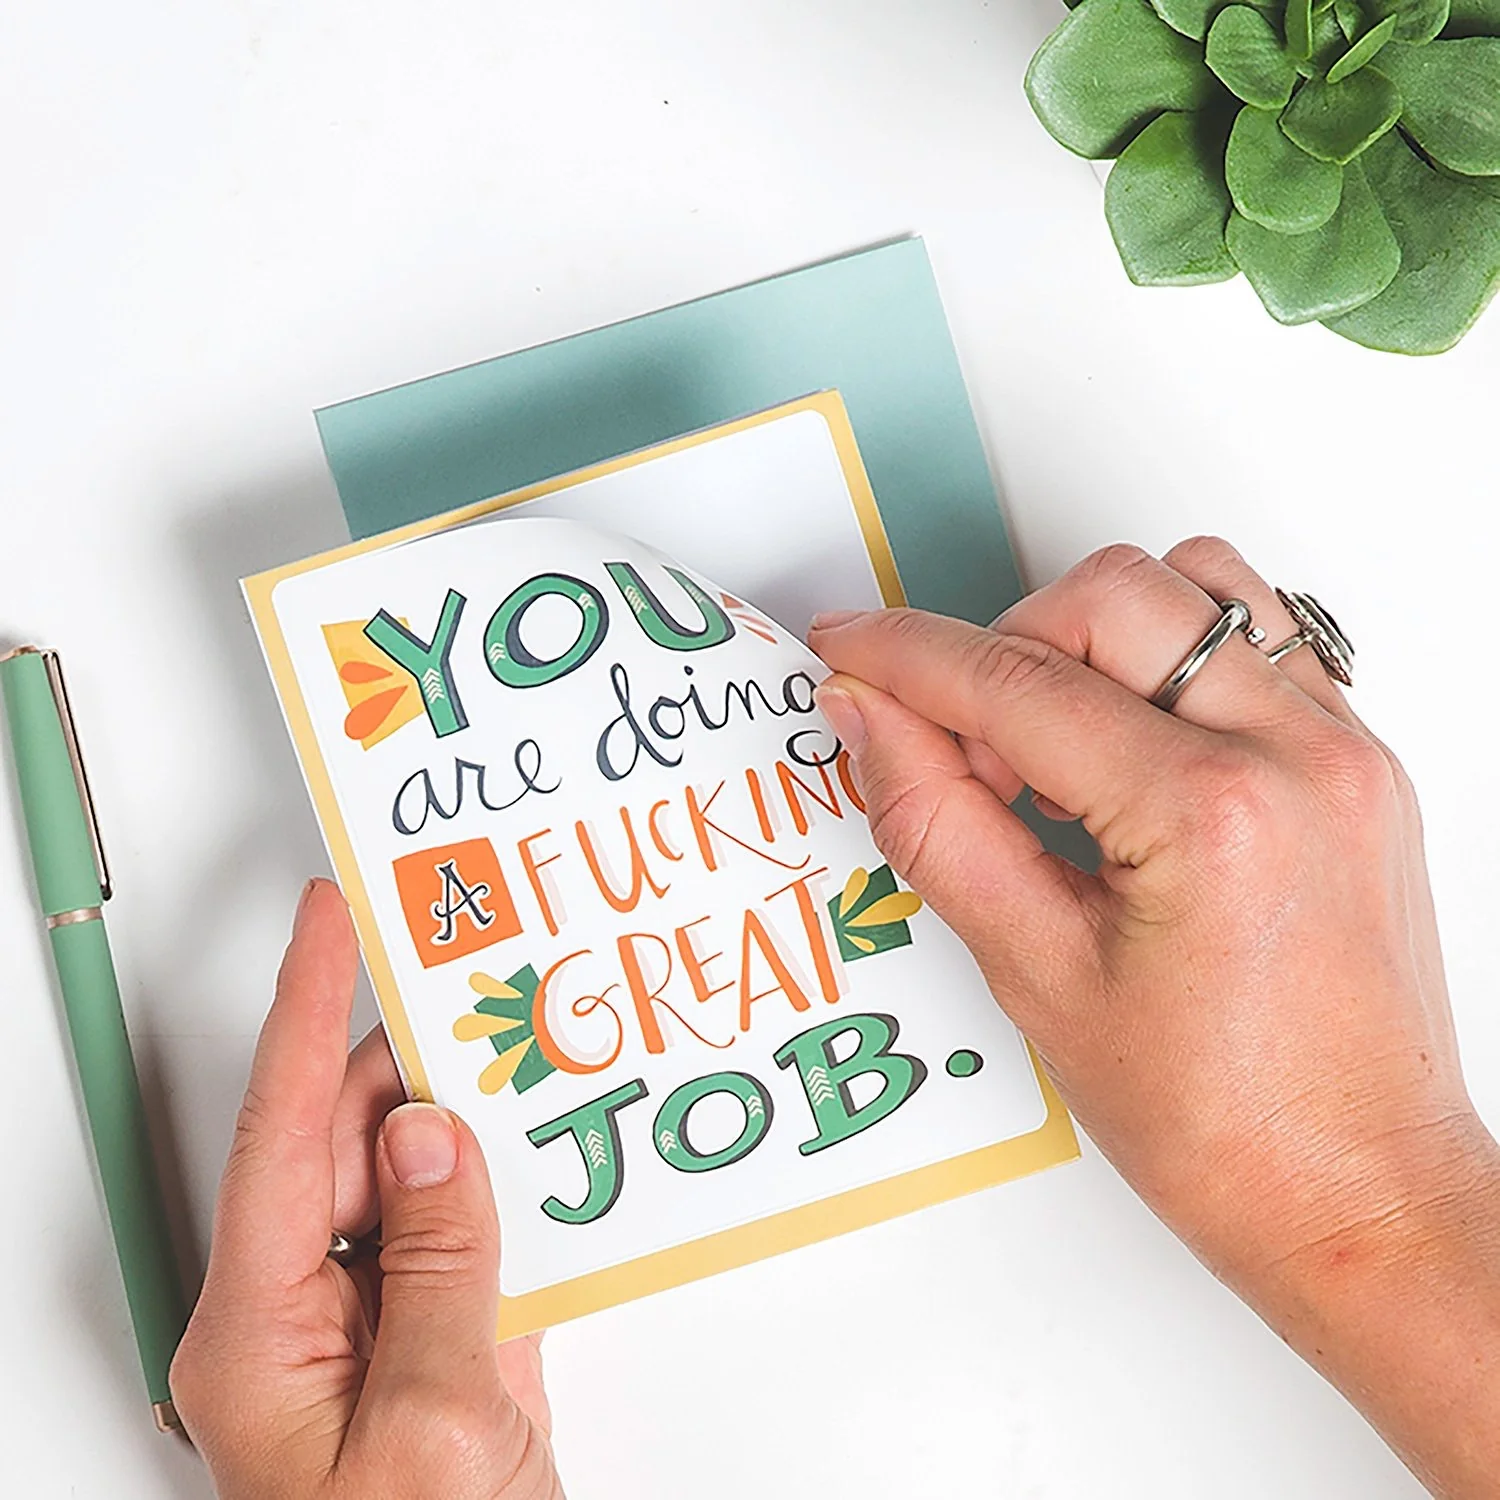 YOU
are doing
A FUCKING
GREAT
JOB.